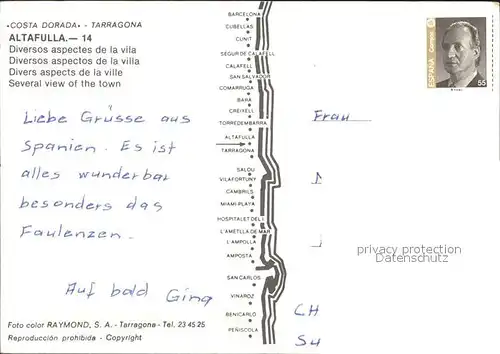 «COSTA DORADA» - TARRAGONA
ALTAFULLA.— 14
Diversos aspectes de la vila
Diversos aspectos de la villa
Divers aspects de la ville
Several view of the town
Liebe Grüsse aus
Spanien. Es ist
alles wunderbar
besonders das
Faulenzen.
Auf bald Gina
Foto color RAYMOND, S. A. - Tarragona - Tel. 23 45 25
Reproducción prohibida - Copyright
BARCELONA
CUBELLAS
CUNIT
SEGUR DE CALAFELL
CALAFELL
SAN SALVADOR
COMARRUGA
BARÁ
CREIXELL
TORREDEMBARRA
ALTAFULLA
TARRAGONA
SALOU
VILAFORTUNY
CAMBRILS
MIAMI-PLAYA
HOSPITALET DEL I.
L'AMETLLA DE MAR
L'AMPOLLA
AMPOSTA
SAN CARLOS
VINAROZ
BENICARLO
PEÑISCOLA
ESPAÑA
Correos
55
Frau
privacy protection
Datenschutz
CH